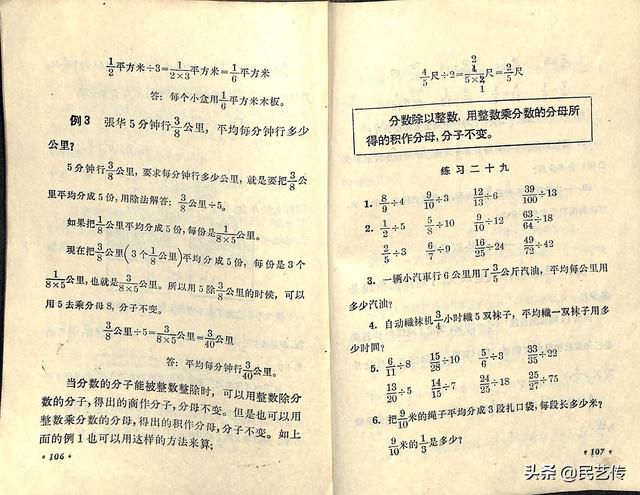 1/2平方米÷3=1/2×3平方米=1/6平方米
答：每个小盒用1/6平方米木板。
例3 張华5分钟行3/8公里，平均每分钟行多少
公里？
5分钟行3/8公里，要求每分钟行多少公里，就是要把3/8公
里平均分成5份，用除法解答：3/8公里÷5。
如果把1/8公里平均分成5份，每份是1/8×5公里。
现在把3/8公里(3个1/8公里)平均分成5份，每份是3个
1/8×5公里，也就是3/8×5公里。所以用5除3/8公里的时候，可以
用5去乘分母8，分子不变。
3/8公里÷5=3/8×5公里=3/40公里
答：平均每分钟行3/40公里。
当分数的分子能被整数整除时，可以用整数除分
数的分子，得出的商作分子，分母不变。但是也可以用
整数乘分数的分母，得出的积作分母，分子不变。如上
面的例1也可以用这样的方法来算；
·106·
4/5尺÷2=4/5×2尺=2/5尺
2
1
分数除以整数，用整数乘分数的分母所
得的积作分母，分子不变。
练习二十九
1. 8/9÷4 9/10÷3 12/13÷6 39/100÷13
2. 1/2÷5 5/8÷10 9/10÷12 63/64÷18
2/5÷3 6/7÷9 16/25÷24 49/72÷42
3. 一辆小汽車行6公里用了3/5公斤汽油，平均每公里用
多少汽油？
4. 自动織袜机3/4小时織5双袜子，平均織一双袜子用多
少时间？
5. 6/11÷8 15/28÷10 5/6÷3 33/35÷22
13/20÷5 14/15÷7 24/25÷18 25/37÷75
6. 把9/10米的绳子平均分成3段扎口袋，每段长多少米？
9/10米的1/3是多少？
·107·
头条 @民艺传